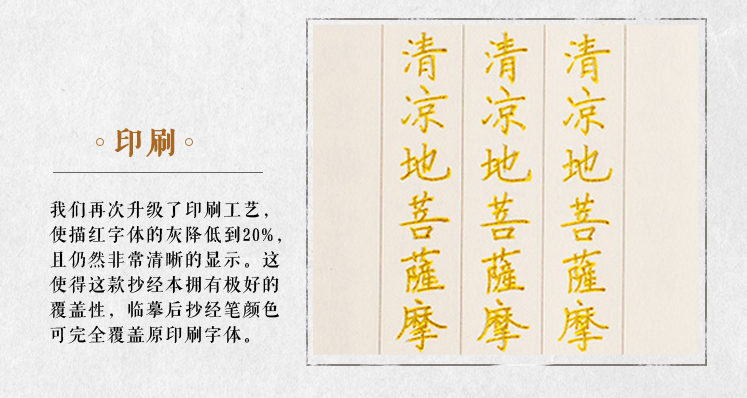 印刷
我们再次升级了印刷工艺，
使描红字体的灰降低到20%，
且仍然非常清晰的显示。这
使得这款抄经本拥有极好的
覆盖性，临摹后抄经笔颜色
可完全覆盖原印刷字体。
清凉地菩薩摩
清凉地菩薩摩
清凉地菩薩摩